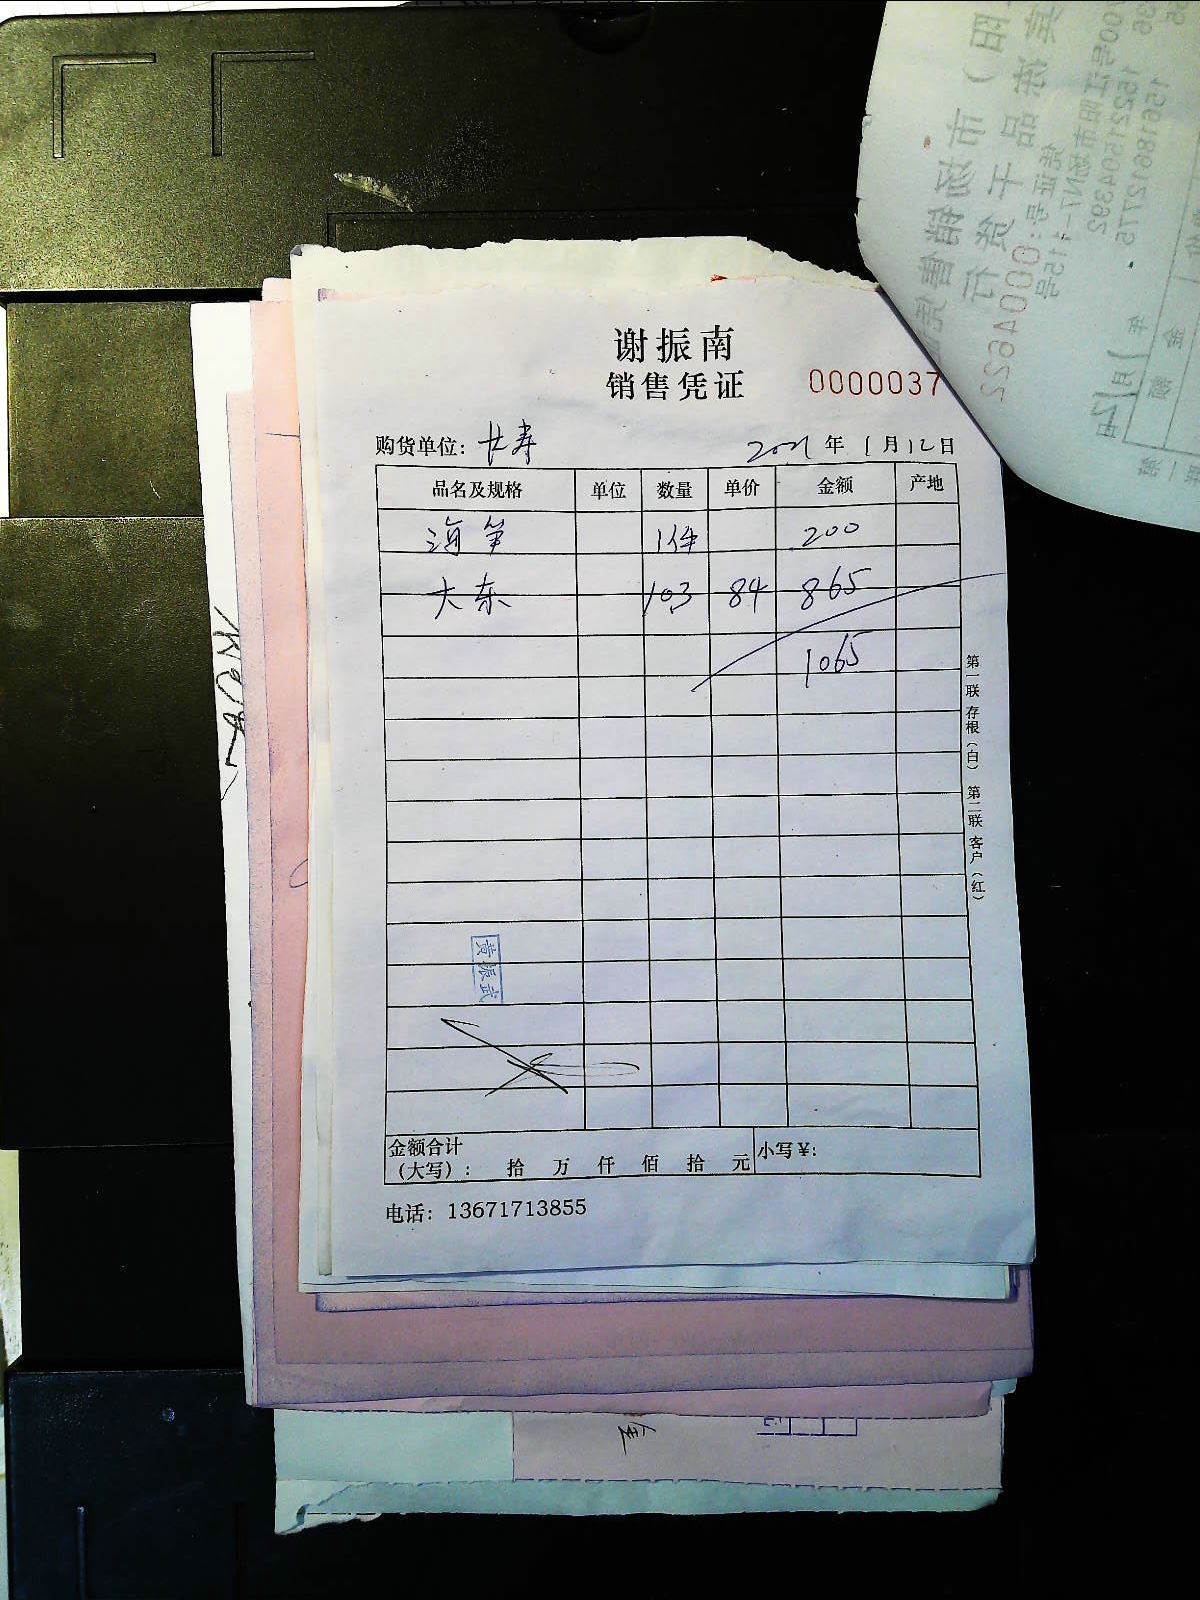 谢振南
销售凭证
0000037
购货单位: 长寿
2021年1月12日
品名及规格 单位 数量 单价 金额 产地
海笋 1件 200
大东 10.3 84 865
1065
第一联 存根（白） 第二联 客户（红）
黄振武
金额合计
（大写）: 拾 万 仟 佰 拾 元 小写¥:
电话: 13671713855
0004822
15221504392
15618612775